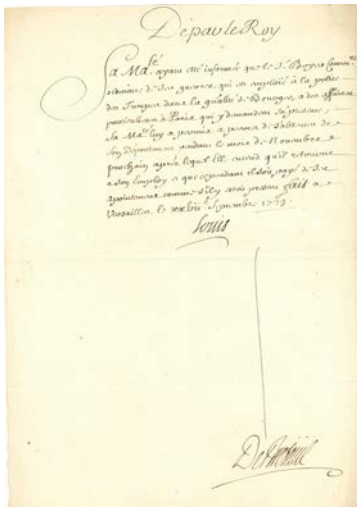 De par le Roy
Sa Ma.té ayant été informée que le S.r Boyer Comm.re
ordinaire de ses guerres, qui est employé à la police
des Troupes dans la de Bourges, a des affaires
particulieres à Paris qui y demandent sa presence,
Sa Ma.té luy a permis et permet de s'absenter de
son Département pendant le mois de Novembre
prochain après lequel Elle entend qu'il retourne
a son Employ et que cependant il soit payé de ses
apointemens comme s'il y etoit present fait a
Versailles le Septembre
Louis